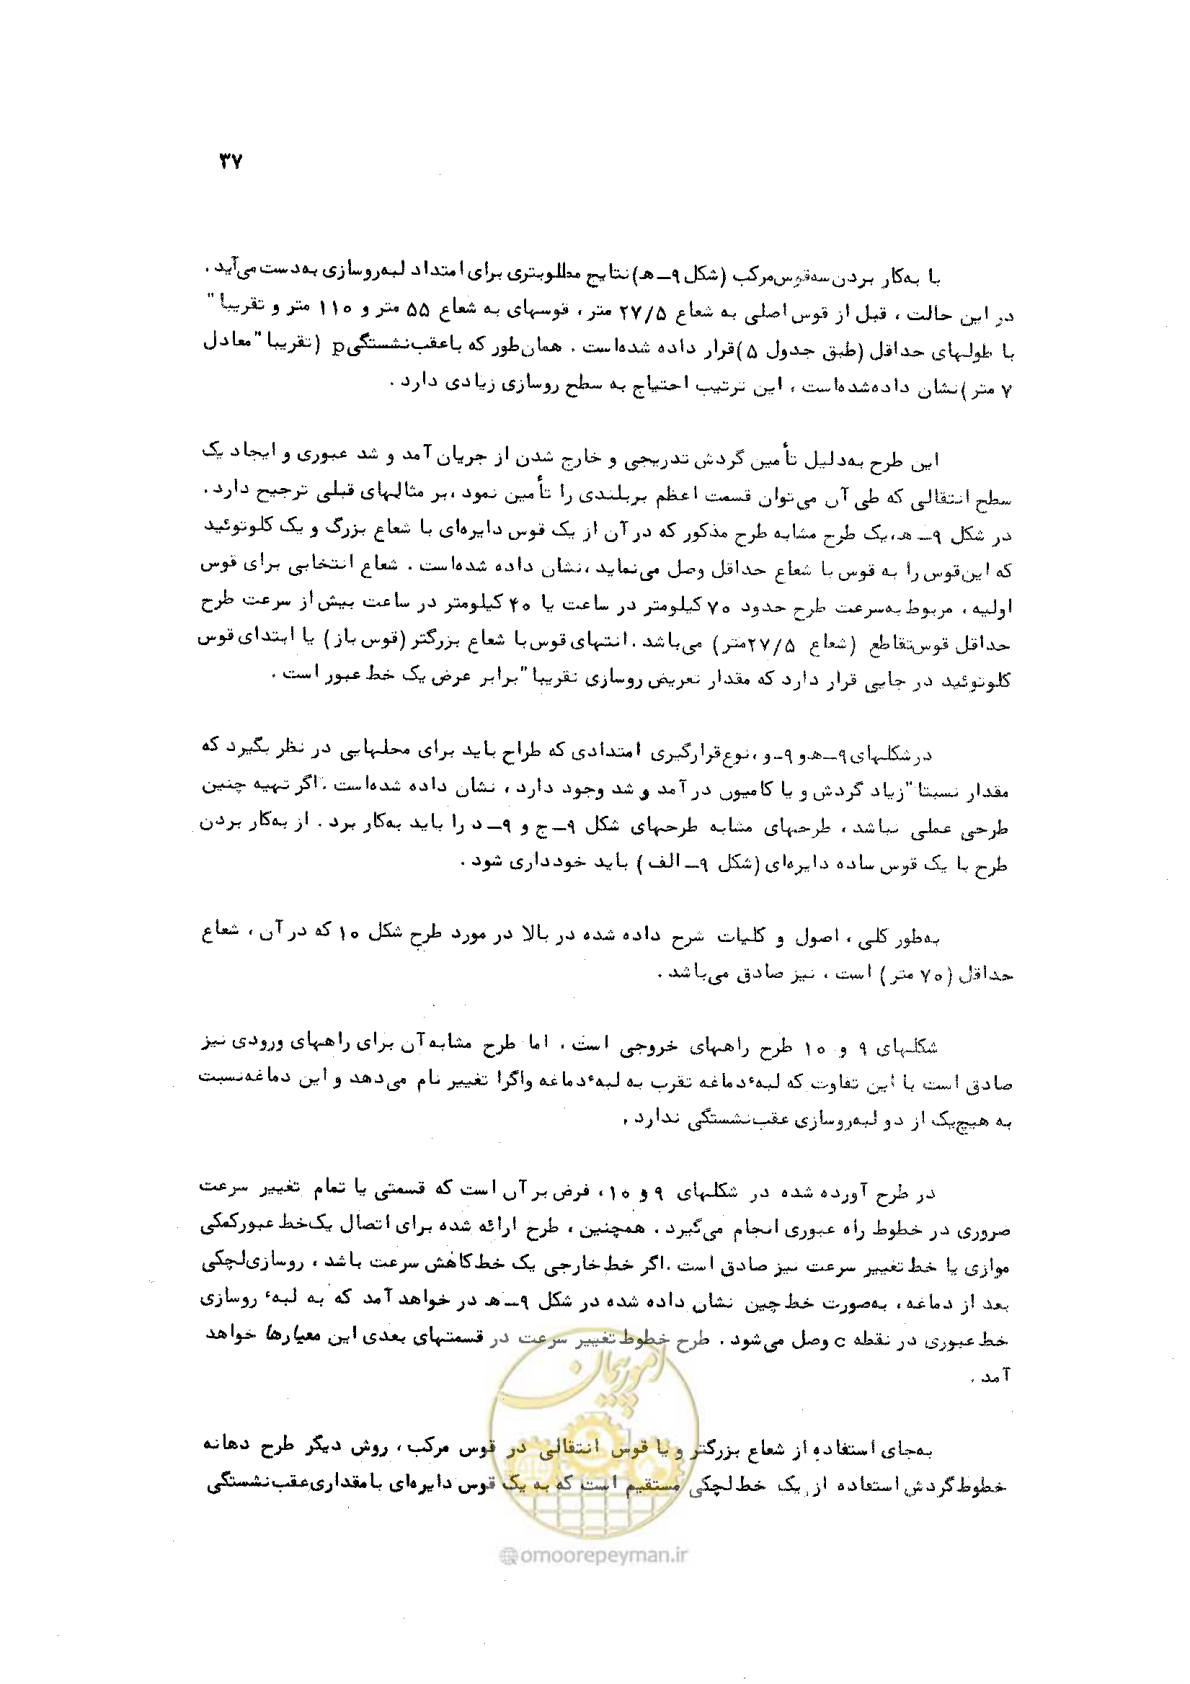 ۳۷
با به‌کار بردن سه‌قوس‌مرکب (شکل ۹ــ ه‍) نتایج مطلوبتری برای امتداد لبه‌روسازی به‌دست می‌آید .
در این حالت ، قبل از قوس اصلی به شعاع ۲۷/۵ متر ، قوسهای به شعاع ۵۵ متر و ۱۱۰ متر و تقریبا"
با طولهای حداقل (طبق جدول ۵) قرار داده شده‌است . همان‌طور که با عقب‌نشستگی p (تقریبا" معادل
۷ متر ) نشان داده‌شده‌است ، این ترتیب احتیاج به سطح روسازی زیادی دارد .
این طرح به‌دلیل تأمین گردش تدریجی و خارج شدن از جریان آمد و شد عبوری و ایجاد یک
سطح انتقالی که طی آن می‌توان قسمت اعظم بربلندی را تأمین نمود ، بر مثالهای قبلی ترجیح دارد .
در شکل ۹ــ ه‍، یک طرح مشابه طرح مذکور که در آن از یک قوس دایره‌ای با شعاع بزرگ و یک کلوتوئید
که این‌قوس را به قوس با شعاع حداقل وصل می‌نماید ، نشان داده شده‌است . شعاع انتخابی برای قوس
اولیه ، مربوط به‌سرعت طرح حدود ۷۰ کیلومتر در ساعت یا ۴۰ کیلومتر در ساعت بیش از سرعت طرح
حداقل قوس‌تقاطع (شعاع ۲۷/۵متر) می‌باشد . انتهای قوس با شعاع بزرگتر (قوس باز) یا ابتدای قوس
کلوتوئید در جایی قرار دارد که مقدار تعریض روسازی تقریبا" برابر عرض یک خط عبور است .
در شکلهای ۹ــ ه‍ و ۹ــ و ، نوع قرارگیری امتدادی که طراح باید برای محلهایی در نظر بگیرد که
مقدار نسبتا" زیاد گردش و یا کامیون در آمد و شد وجود دارد ، نشان داده شده‌است . اگر تهیه چنین
طرحی عملی نباشد ، طرحهای مشابه طرحهای شکل ۹ــ ج و ۹ــ د را باید به‌کار برد . از به‌کار بردن
طرح با یک قوس ساده دایره‌ای (شکل ۹ــ الف ) باید خودداری شود .
به‌طور کلی ، اصول و کلیات شرح داده شده در بالا در مورد طرح شکل ۱۰ که در آن ، شعاع
حداقل (۷۰ متر ) است ، نیز صادق می‌باشد .
شکلهای ۹ و ۱۰ طرح راههای خروجی است ، اما طرح مشابه آن برای راههای ورودی نیز
صادق است با این تفاوت که لبهٔ دماغه تقرب به لبهٔ دماغه واگرا تغییر نام می‌دهد و این دماغه‌نسبت
به هیچ‌یک از دو لبه‌روسازی عقب‌نشستگی ندارد .
در طرح آورده شده در شکلهای ۹ و ۱۰ ، فرض بر آن است که قسمتی یا تمام تغییر سرعت
ضروری در خطوط راه عبوری انجام می‌گیرد . همچنین ، طرح ارائه شده برای اتصال یک‌خط عبورکمکی
موازی یا خط تغییر سرعت نیز صادق است . اگر خط خارجی یک خط کاهش سرعت باشد ، روسازی لچکی
بعد از دماغه ، به‌صورت خط چین نشان داده شده در شکل ۹ــ ه‍ در خواهد آمد که به لبهٔ روسازی
خط عبوری در نقطه c وصل می‌شود . طرح خطوط تغییر سرعت در قسمتهای بعدی این معیارها خواهد
آمد .
به‌جای استفاده از شعاع بزرگتر و یا قوس انتقالی در قوس مرکب ، روش دیگر طرح دهانه
خطوط گردش استفاده از یک خط لچکی مستقیم است که به یک قوس دایره‌ای با مقداری عقب‌نشستگی
امور پیمان
@omoorepeyman.ir